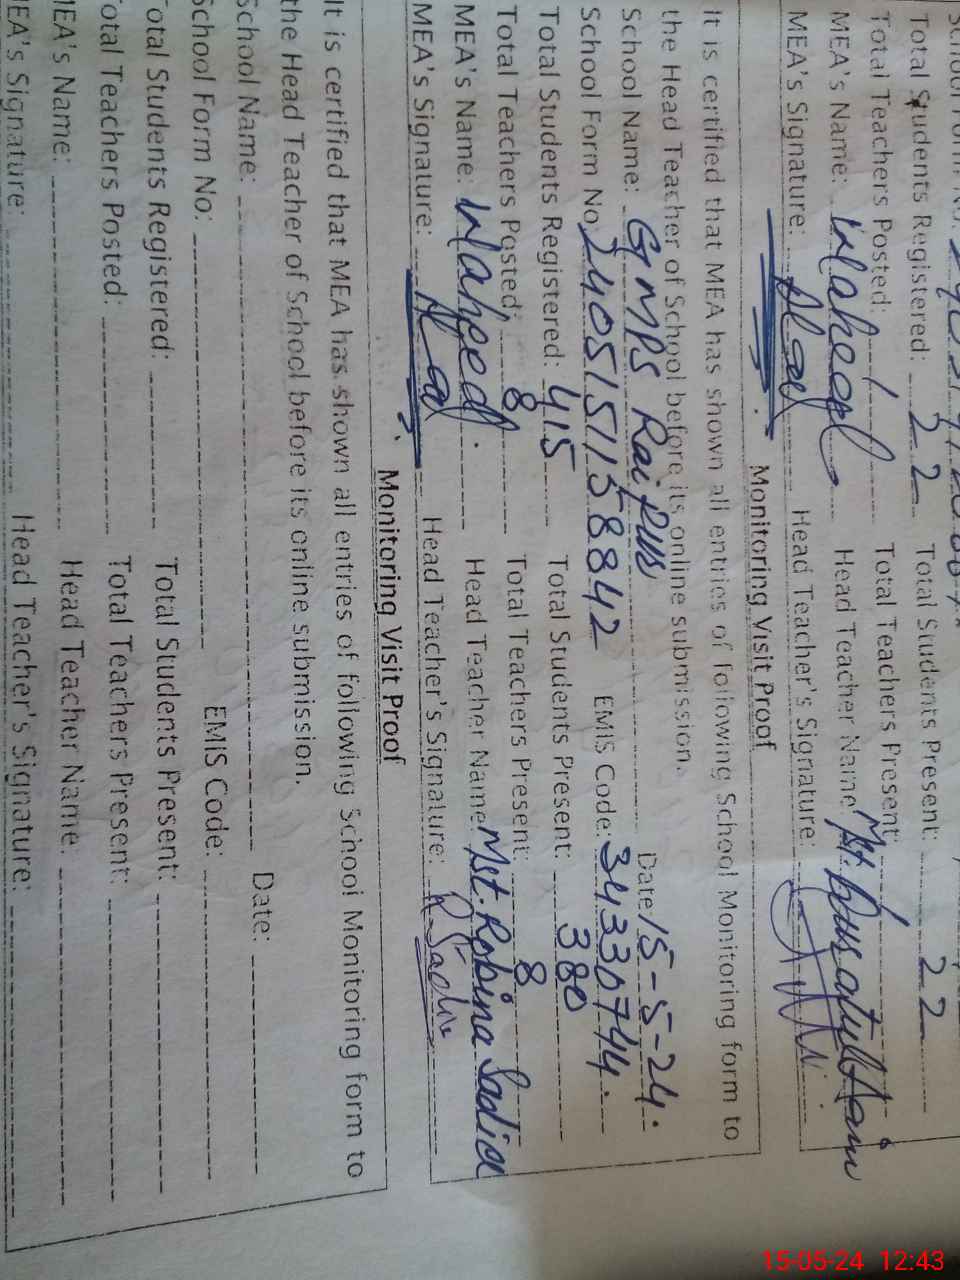 Total Students Registered: 22 Total Students Present: 22
Total Teachers Posted: 1 Total Teachers Present: 1
MEA's Name: Waheed Head Teacher Name: Mst.
MEA's Signature: Head Teacher's Signature:
Monitoring Visit Proof
It is certified that MEA has shown all entries of following School Monitoring form to
the Head Teacher of School before its online submission.
School Name: GMPS Raipur Date: 15-5-24.
School Form No. 2405151158842 EMIS Code: 34330744.
Total Students Registered: 415 Total Students Present: 380
Total Teachers Posted: 8 Total Teachers Present: 8
MEA's Name: Waheed. Head Teacher Name: Mst. Robina Sadiq
MEA's Signature: Head Teacher's Signature: R Sadiq
Monitoring Visit Proof
It is certified that MEA has shown all entries of following School Monitoring form to
the Head Teacher of School before its online submission.
School Name: Date:
School Form No: EMIS Code:
Total Students Registered: Total Students Present:
Total Teachers Posted: Total Teachers Present:
MEA's Name: Head Teacher Name:
MEA's Signature: Head Teacher's Signature:
15-05-24 12:43